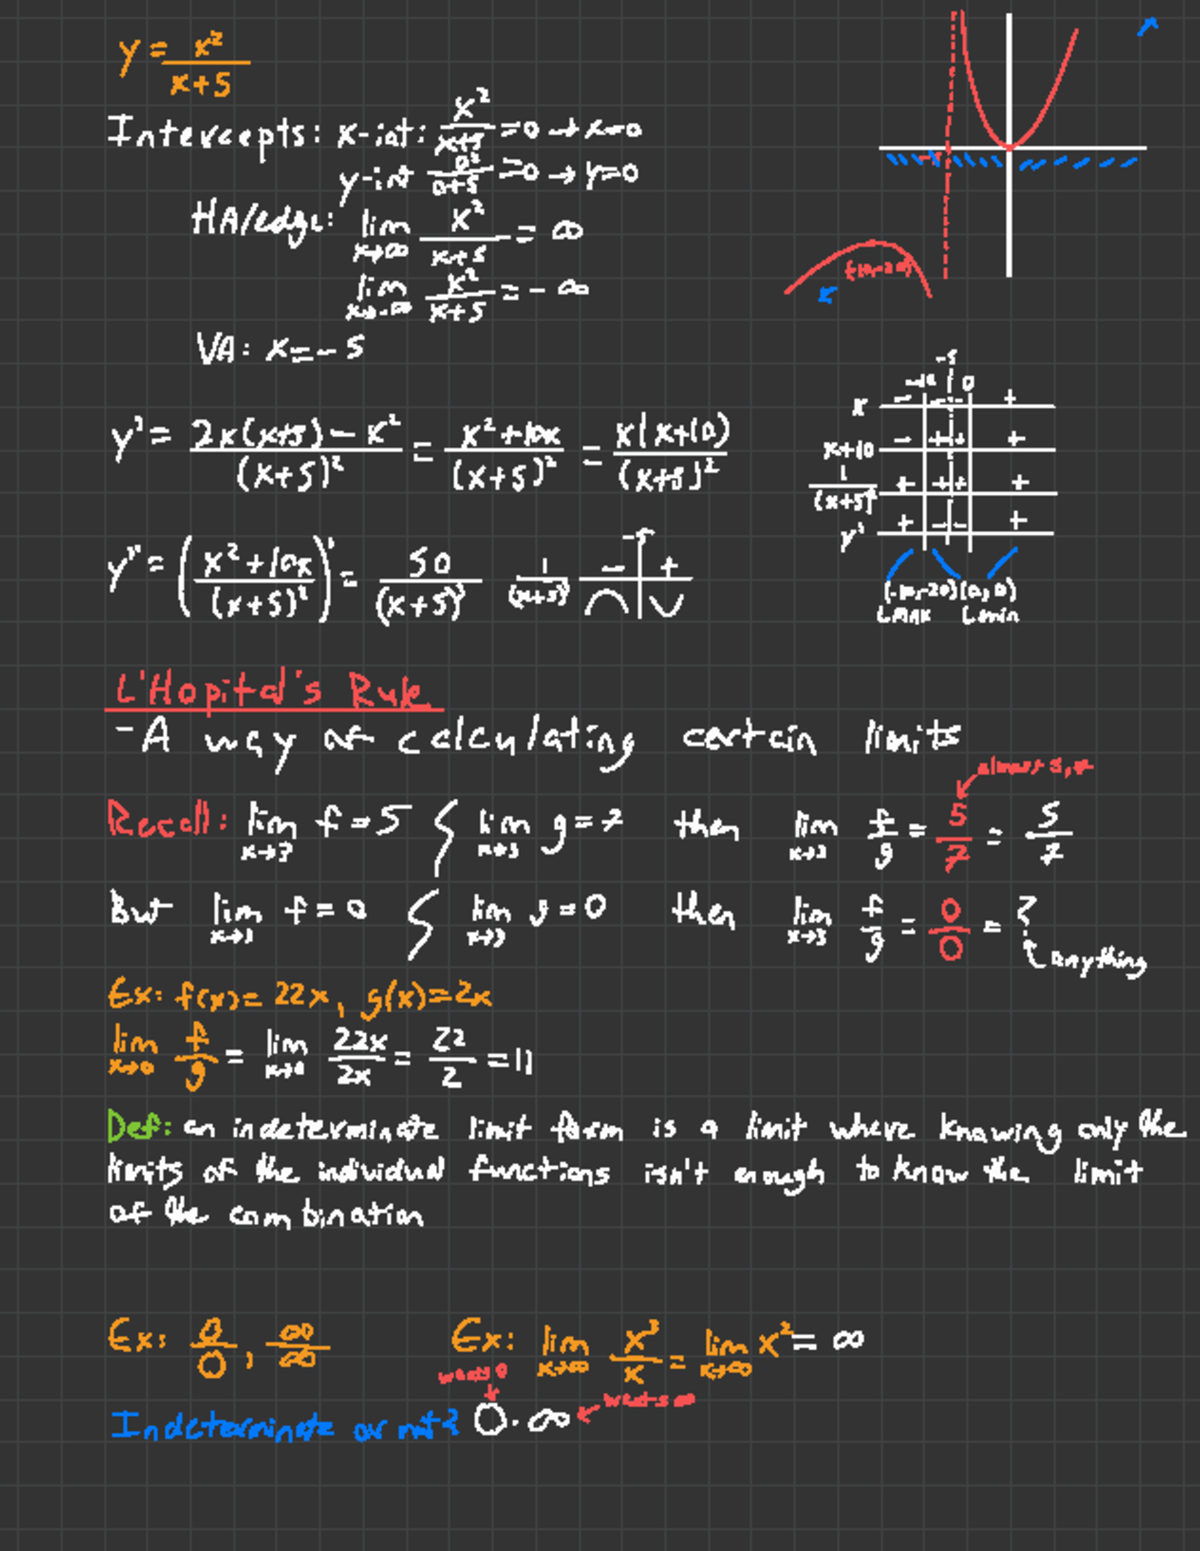 y = x²/(x+5)
Intercepts: x-int: x²/(x+5) = 0 → x=0
y-int 0²/(0+5) = 0 → y=0
HA/edge: lim x→∞ x²/(x+5) = ∞
lim x→-∞ x²/(x+5) = -∞
VA: x=-5
(-10,-20)
y' = (2x(x+5) - x²)/(x+5)² = (x²+10x)/(x+5)² = x(x+10)/(x+5)²
-10 -5 0
x - - - +
x+10 - + + +
1/(x+5)² + + + +
y' + - - +
(-10,-20) (0,0)
LMAX Lmin
y'' = ((x²+10x)/(x+5)²)' = 50/(x+5)³ 1/(x+5)³ - -5 +
L'Hopital's Rule
- A way of calculating certain limits
almost 5, 7
Recall: lim x→3 f = 5 & lim x→3 g = 7 then lim x→3 f/g = 5/7 = 5/7
But lim x→3 f = 0 & lim x→3 g = 0 then lim x→3 f/g = 0/0 = ?
anything
Ex: f(x) = 22x, g(x) = 2x
lim x→0 f/g = lim x→0 22x/2x = 22/2 = 11
Def: an indeterminate limit form is a limit where knowing only the
limits of the individual functions isn't enough to know the limit
of the combination
Ex: 0/0, ∞/∞ Ex: lim x→∞ x³/x = lim x→∞ x² = ∞
wants 0 wants ∞
Indeterminate or not? 0·∞